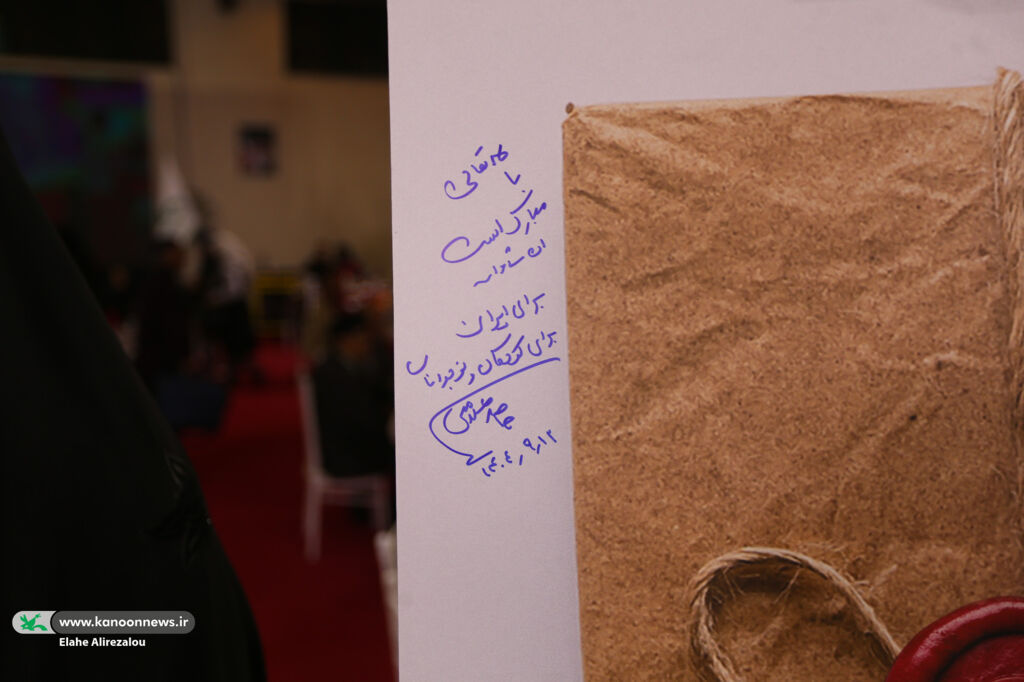 با
مبارک است
ان شاءالله
برای ایران
برای کودکان و نوجوانان
۱۴۰۴٫۹٫۱۲
www.kanoonnews.ir
Elahe Alirezalou